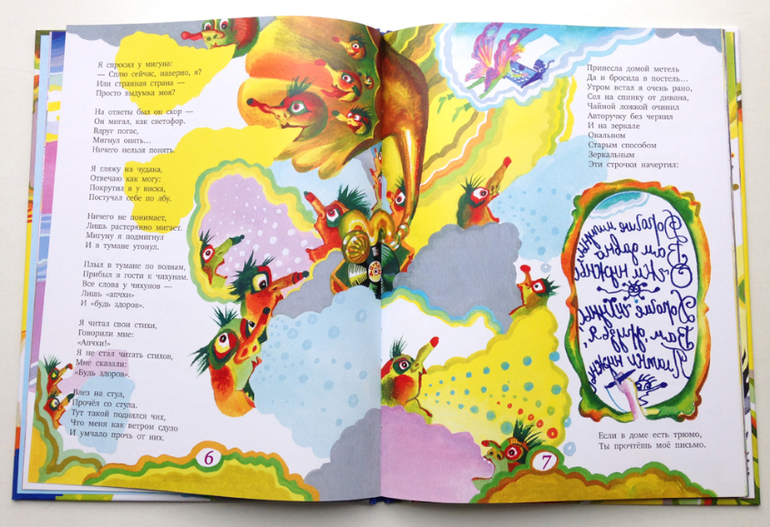 Я спросил у мигуна:
— Сплю сейчас, наверно, я?
Или странная страна —
Просто выдумка моя?
На ответы был он скор —
Он мигал, как светофор.
Вдруг погас,
Мигнул опять...
Ничего нельзя понять.
Я гляжу на чудака,
Отвечаю как могу:
Покрутил я у виска,
Постучал себе по лбу.
Ничего не понимает,
Лишь растерянно мигает.
Мигуну я подмигнул
И в тумане утонул.
Плыл в тумане по волнам,
Прибыл в гости к чихунам.
Все слова у чихунов —
Лишь «апчхи»
И «будь здоров».
Я читал свои стихи,
Говорили мне:
«Апчхи!»
Я не стал читать стихов,
Мне сказали:
«Будь здоров».
Влез на стул,
Прочёл со стула.
Тут такой поднялся чих,
Что меня как ветром сдуло
И умчало прочь от них.
6
Принесла домой метель
Да и бросила в постель...
Утром встал я очень рано,
Сел на спинку от дивана,
Чайной ложкой очинил
Авторучку без чернил
И на зеркале
Овальном
Старым способом
Зеркальным
Эти строчки начертил:
Дорогие мигуны,
Вам давно
Очки нужны.
чихуны,
Вам, друзья,
Платки нужны.
Если в доме есть трюмо,
Ты прочтёшь моё письмо.
7